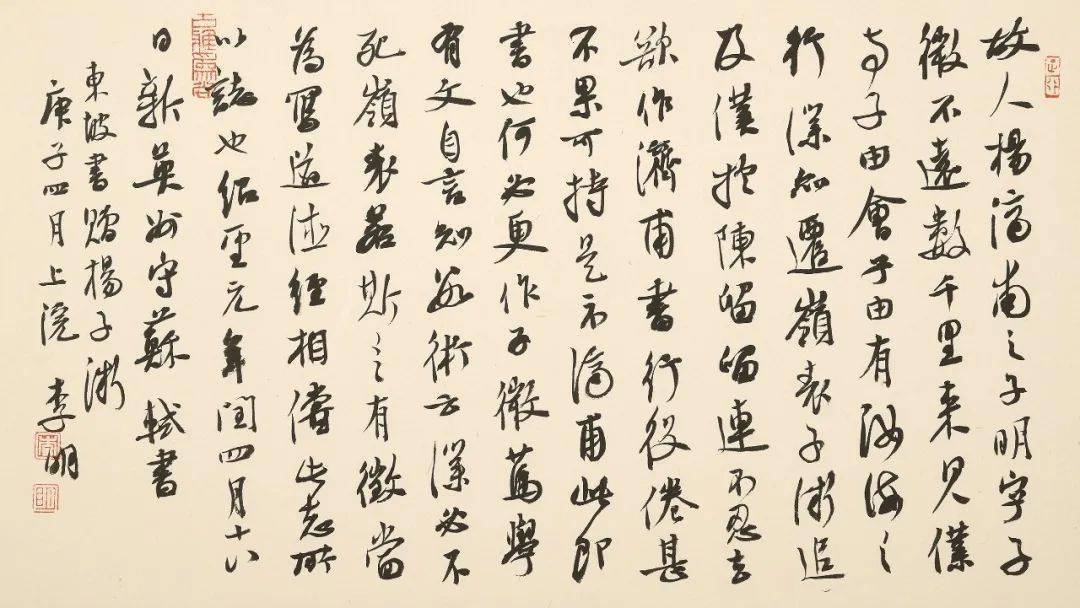 故人楊濟甫之子明字子
微不遠數千里來見僕
与子由會子由有汝海之
行僕知遷嶺表子微追
及僕於陳留留連不忍去
欲作濟甫書行役倦甚
不果可持是示濟甫此即
書也何必更作子微篤學
有文自言知數術云僕必不
死嶺表若斯言有徵當
為寫道德經相償此志所
以誌也紹聖元年閏四月十八
日新英州守蘇軾書
東坡書贈楊子微
庚子四月上浣 李明